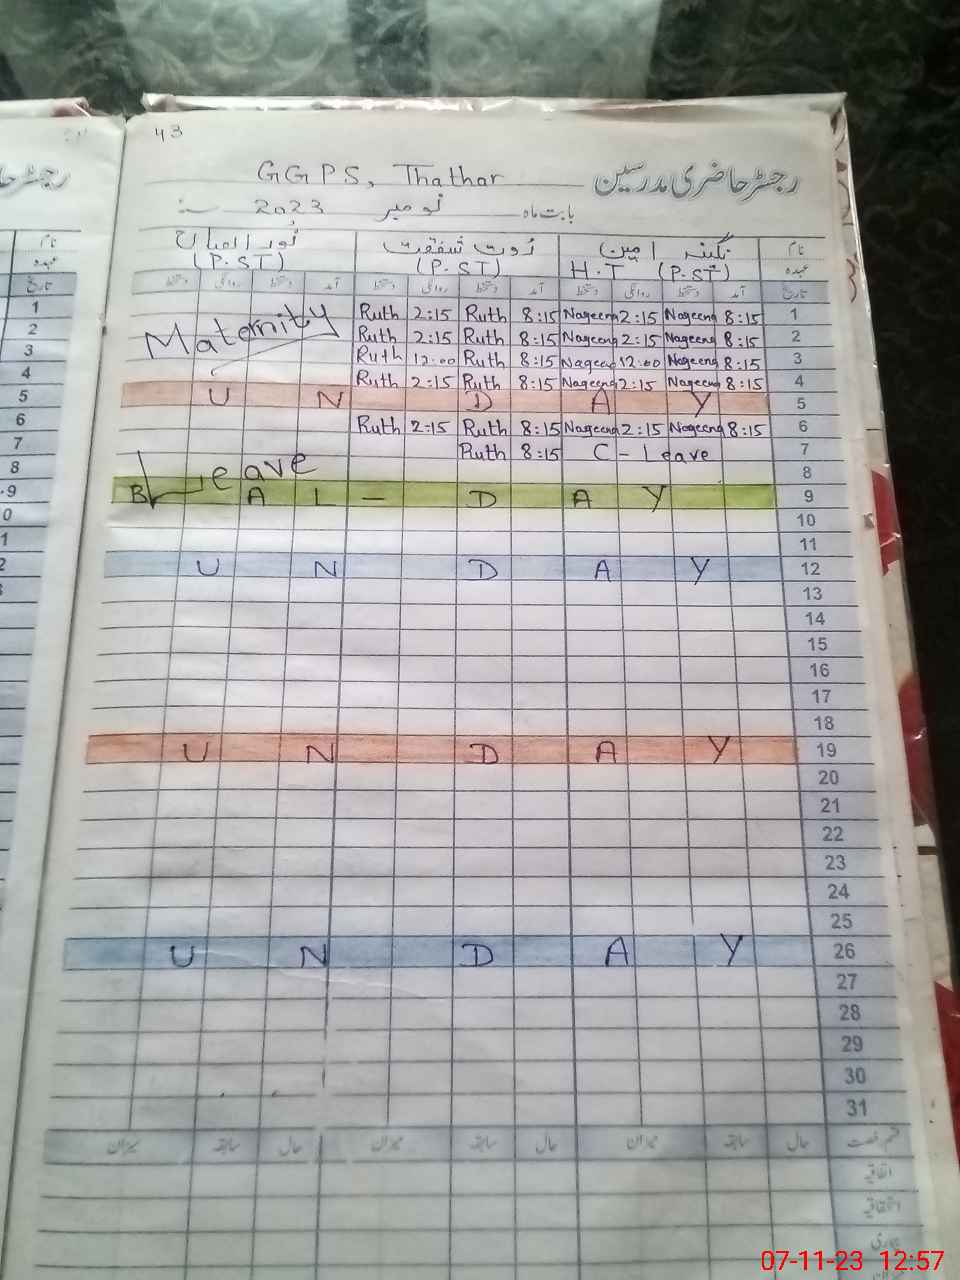 43
GGPS, Thathar رجسٹر حاضری مدرسین
بابت ماہ نومبر 2023 سنہ
نام نگینہ امین رُوت شفقت نُور الصباح
عہدہ H.T (P.ST) (P.ST) (P.ST)
تاریخ آمد دستخط روانگی دستخط آمد دستخط روانگی دستخط آمد دستخط روانگی دستخط
Maternity Ruth 2:15 Ruth 8:15 Nageena 2:15 Nageena 8:15 1
Ruth 2:15 Ruth 8:15 Nageena 2:15 Nageena 8:15 2
Ruth 12:00 Ruth 8:15 Nageena 12:00 Nageena 8:15 3
Ruth 2:15 Ruth 8:15 Nageena 2:15 Nageena 8:15 4
U N D A Y 5
Ruth 2:15 Ruth 8:15 Nageena 2:15 Nageena 8:15 6
Ruth 8:15 C - Leave 7
Leave 8
B A L - D A Y 9
10
11
U N D A Y 12
13
14
15
16
17
18
U N D A Y 19
20
21
22
23
24
25
U N D A Y 26
27
28
29
30
31
قسم رخصت حال سابقہ میزان حال سابقہ میزان حال سابقہ میزان
اتفاقیہ
استحقاقیہ
بیماری
07-11-23 12:57